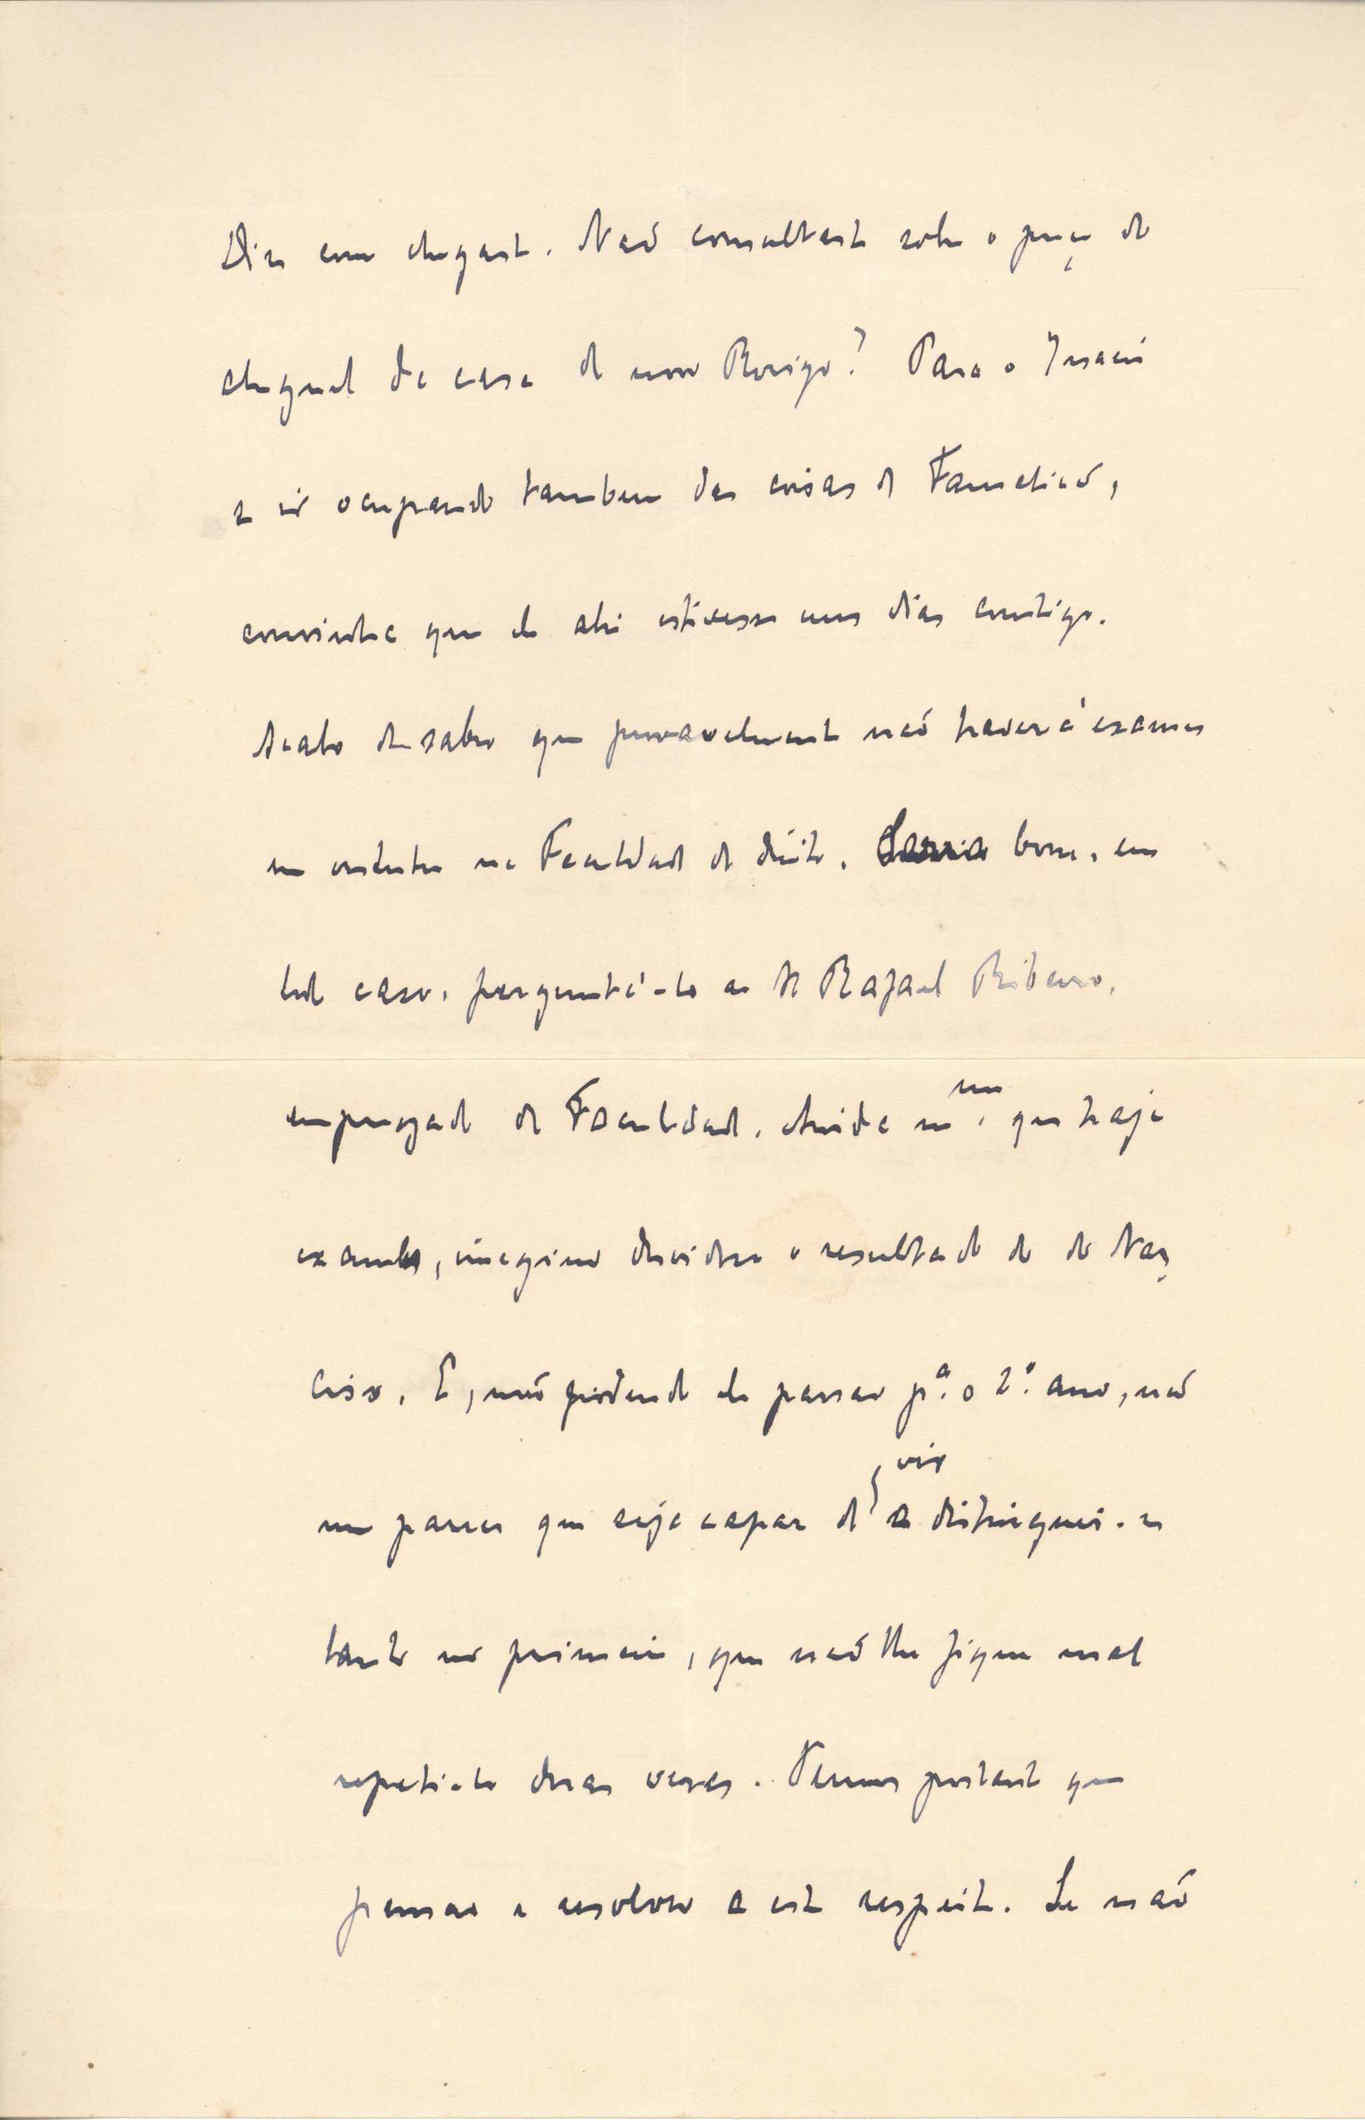 Diz como chegaste. Não consultaste sobre o preço do
aluguel da casa do novo Rodrigo? Para o Inácio
se ir ocupando tambem das coisas de Famalicão,
convinha que ele ahi estivesse uns dias contigo.
Acabo de saber que provavelmente não haverá exames
em outubro na Faculdade de direito. Seria bom, em
todo caso, perguntá-lo ao Sr Rafael Ribeiro,
empregado da Faculdade. Ainda mesmo que haja
exames, imagino duvidoso o resultado do do Nar
ciso. E, não podendo ele passar p.ª o 2.º ano, não
me parece que seja capaz de vir a distinguir-se
tanto no primeiro, que não lhe fique mal
repeti-lo duas vezes. Temos portanto que
pensar e resolver a este respeito. Se não